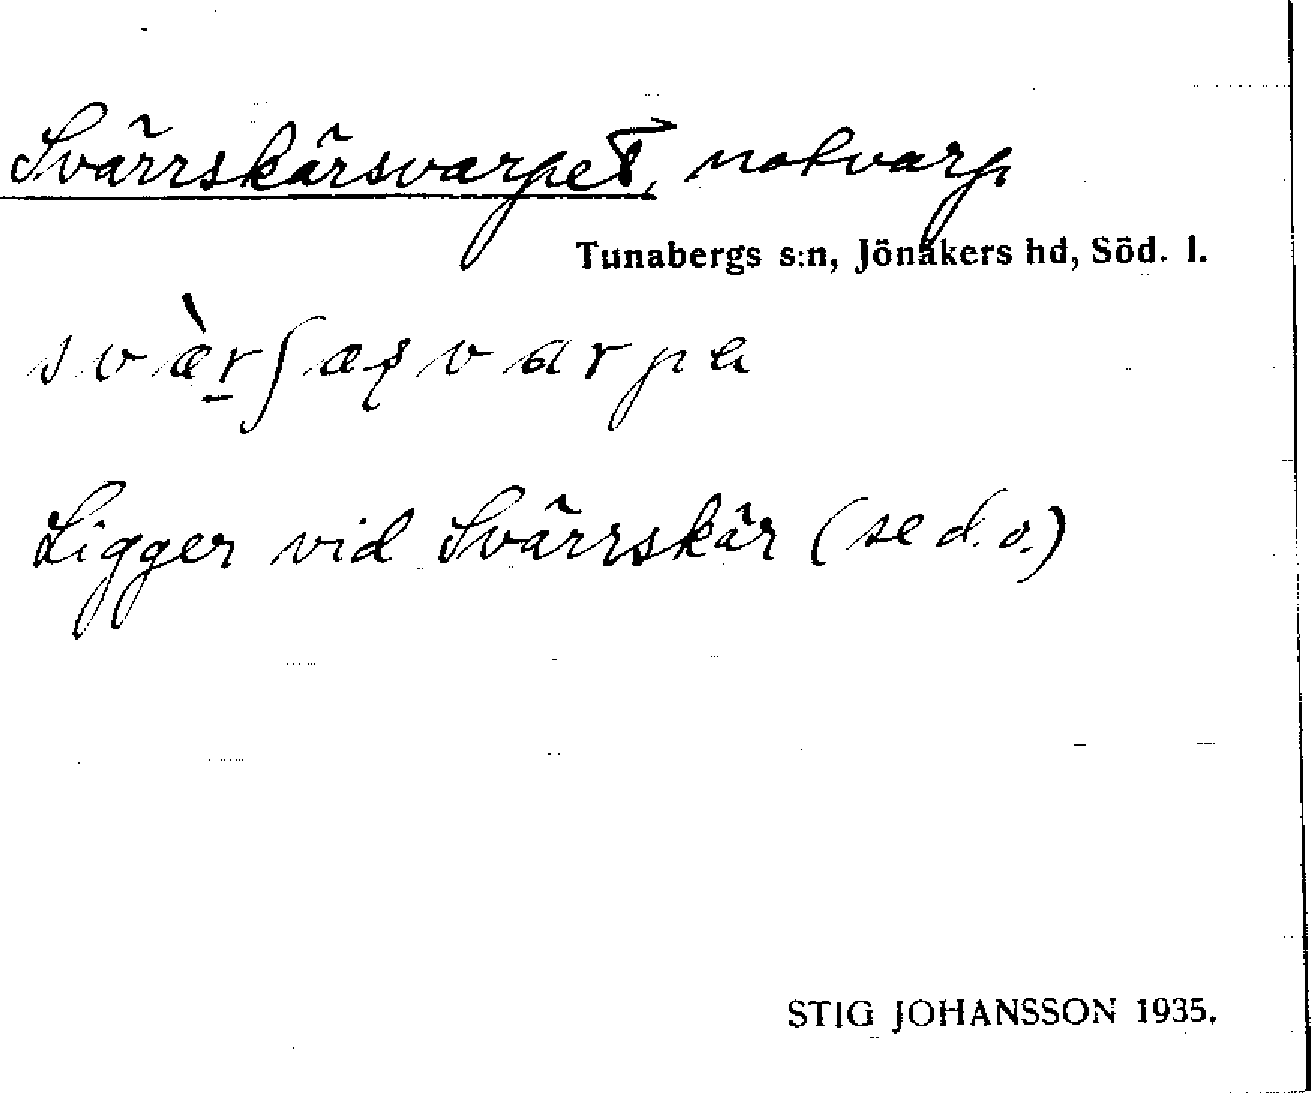 Svärrskärsvarpet, notvarp
Tunabergs s:n, Jönåkers hd, Söd. l.
svæ̀r̲ʃæʂvarpa
Ligger vid Svärrskär (se d. o.)
STIG JOHANSSON 1935.